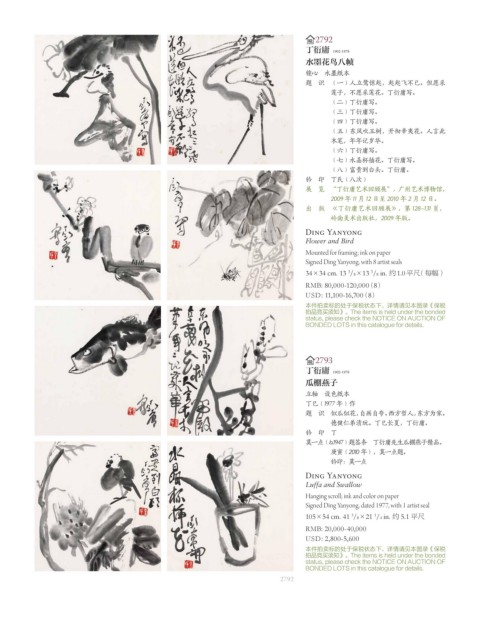 2792
丁衍庸 1902-1978
水墨花鸟八帧
镜心 水墨纸本
题 识 (一)人立鹭惊起,起起飞不已。但愿采
莲子,不愿采莲花。丁衍庸写。
(二)丁衍庸写。
(三)丁衍庸写。
(四)丁衍庸写。
(五)东风吹玉树,开彻辛夷花,人言此
木笔,年年记岁华。
(六)丁衍庸写。
(七)水晶杯插花。丁衍庸写。
(八)富贵到白头,丁衍庸。
钤 印 丁氏(八次)
展 览 “丁衍庸艺术回顾展”,广州艺术博物馆,
2009年11月12日至2010年2月12日。
出 版 《丁衍庸艺术回顾展》,第128-131页,
岭南美术出版社,2009年版。
DING YANYONG
Flower and Bird
Mounted for framing; ink on paper
Signed Ding Yanyong, with 8 artist seals
34×34 cm. 13 3/8×13 3/8 in. 约1.0平尺(每幅)
RMB: 80,000-120,000 (8)
USD: 11,100-16,700 (8)
本件拍卖标的处于保税状态下,详情请见本图录《保税
拍品竞买须知》。The items is held under the bonded
status, please check the NOTICE ON AUCTION OF
BONDED LOTS in this catalogue for details.
2793
丁衍庸 1902-1978
瓜棚燕子
立轴 设色纸本
丁巳(1977年)作
钤 印 丁
DING YANYONG
Luffa and Swallow
Hanging scroll; ink and color on paper
Signed Ding Yanyong, dated 1977, with 1 artist seal
105×54 cm. 41 3/8×21 1/4 in. 约5.1平尺
RMB: 20,000-40,000
USD: 2,800-5,600
本件拍卖标的处于保税状态下,详情请见本图录《保税
拍品竞买须知》。The items is held under the bonded
status, please check the NOTICE ON AUCTION OF
BONDED LOTS in this catalogue for details.
2792